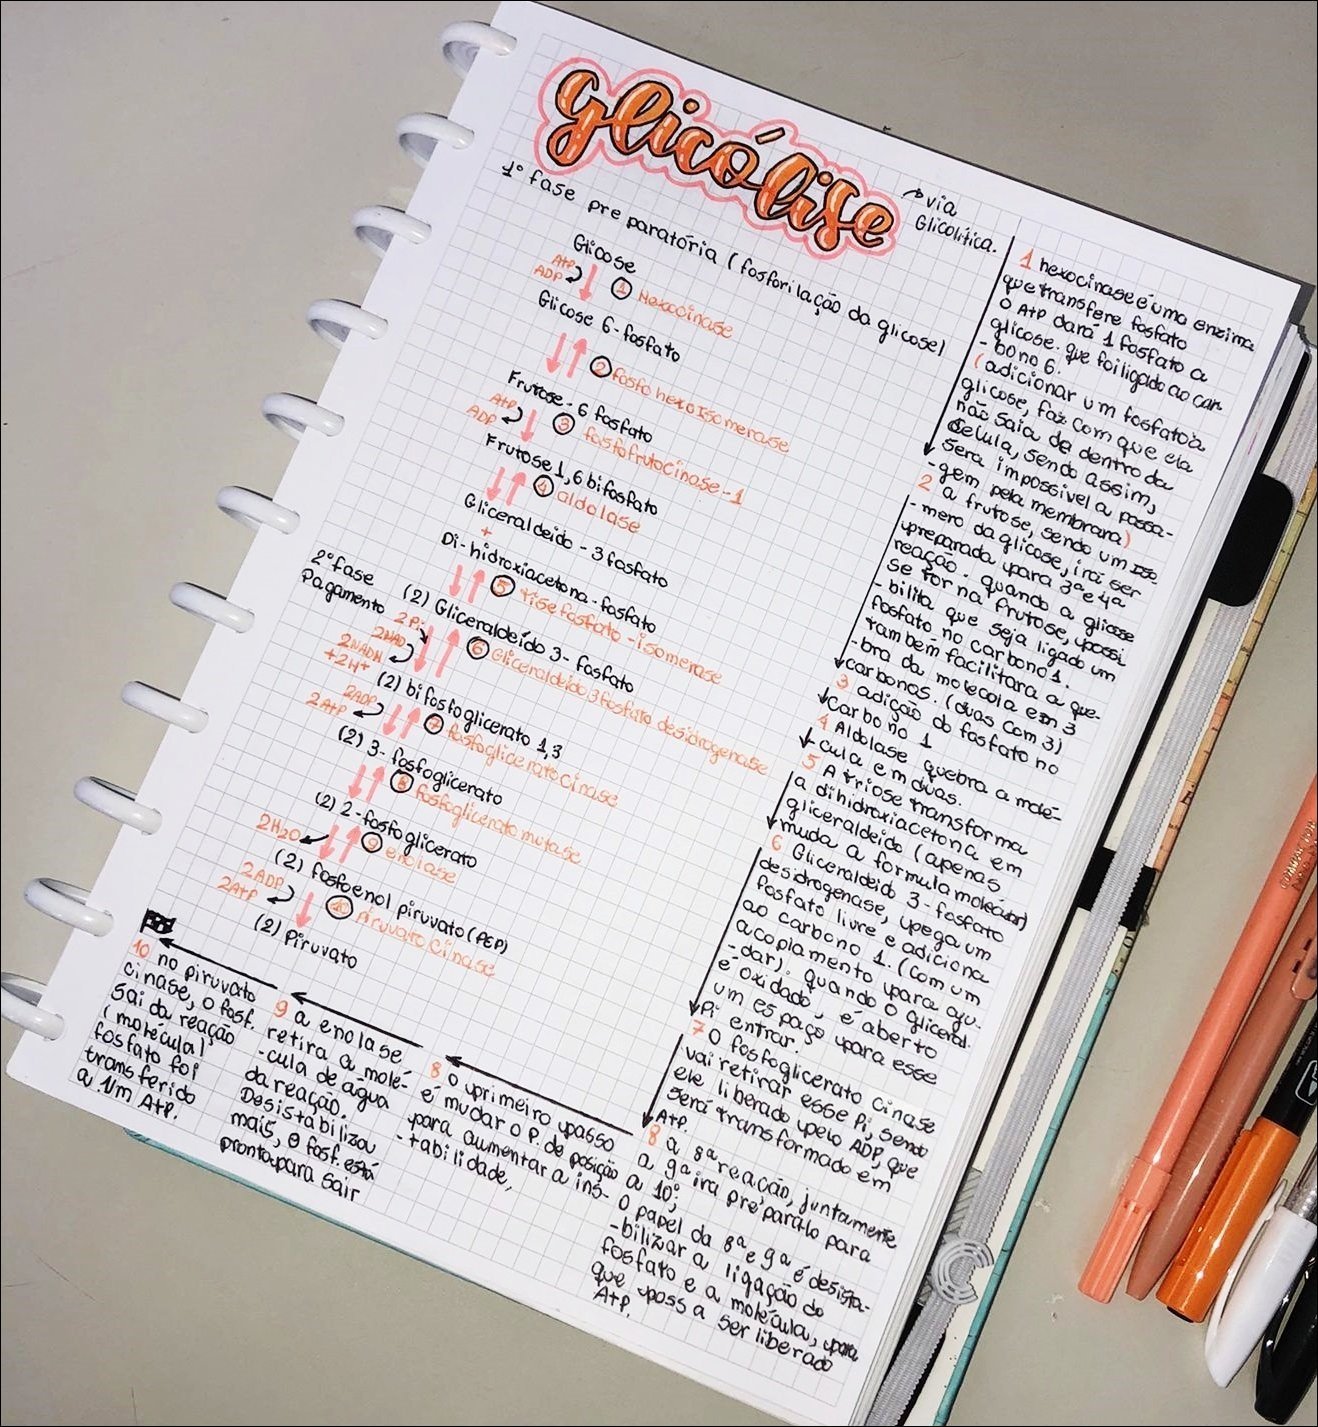 Glicólise
→ via
Glicolítica.
1º fase preparatória (fosforilação da glicose)
Glicose
ATP
ADP
1 Hexocinase
Glicose 6-fosfato
2 fosfo hexoisomerase
Frutose-6 fosfato
ATP
ADP
3 fosfofrutocinase-1
Frutose 1,6 bifosfato
4 aldolase
Gliceraldeido-3 fosfato
+
Di-hidroxiacetona-fosfato
5 tise fosfato-isomerase
2º fase
Pagamento
(2) Gliceraldeído 3-fosfato
2Pi
2NAD
2NADH
+2H+
6 Gliceraldeído 3 fosfato desidrogenase
(2) bifosfoglicerato 1,3
2ADP
2ATP
7 fosfoglicerato cinase
(2) 3-fosfoglicerato
8 fosfoglicerato mutase
(2) 2-fosfoglicerato
2H2O
9 enolase
(2) fosfoenol piruvato (PEP)
2ADP
2ATP
10 piruvato cinase
(2) Piruvato
1 hexocinase é uma enzima
que transfere fosfato
O ATP dará 1 fosfato a
glicose. que foi ligado ao car
-bono 6.
(adicionar um fosfato à
glicose, faz com que ela
não saia de dentro da
célula, sendo assim,
sera impossível a passa-
-gem pela membrana)
2 a frutose, sendo um iso
-mero da glicose, irá ser
preparada para 3ª e 4ª
reação. quando a glicose
se torna frutose, possi
-bilita que seja ligado um
fosfato no carbono 1.
também facilitara a que-
-bra da molecola em 3
carbonos. (duas com 3)
3 adição do fosfato no
carbono 1
4 Aldolase quebra a molé-
-cula em duas.
5 A triose transforma
a dihidroxiacetona em
gliceraldeído (apenas
muda a formula molecular)
6 Gliceraldeído 3-fosfato
desidrogenase, pega um
fosfato livre e adiciona
ao carbono 1. (com um
acoplamento para aju-
-dar). quando o gliceral.
é oxidado, é aberto
um espaço para esse
Pi entrar.
7 O fosfoglicerato cinase
vai retirar esse Pi, sendo
ele liberado pelo ADP, que
será transformado em
ATP.
8 a 8ª reação, juntamente
a 9ª ira prepará-lo para
a 10ª;
O papel da 8ª e 9ª é desista-
-bilizar a ligação do
fosfato e a molécula, para
que possa ser liberado
ATP.
8 o primeiro passo
é mudar o P. de posição
para aumentar a ins-
-tabilidade,
9 a enolase
retira a molé-
-cula de água
da reação.
Desistabilizou
mais, o fosf. está
pronto para sair
10 no piruvato
cinase, o fosf.
sai da reação
(molécula)
fosfato foi
transferido
a um ATP.